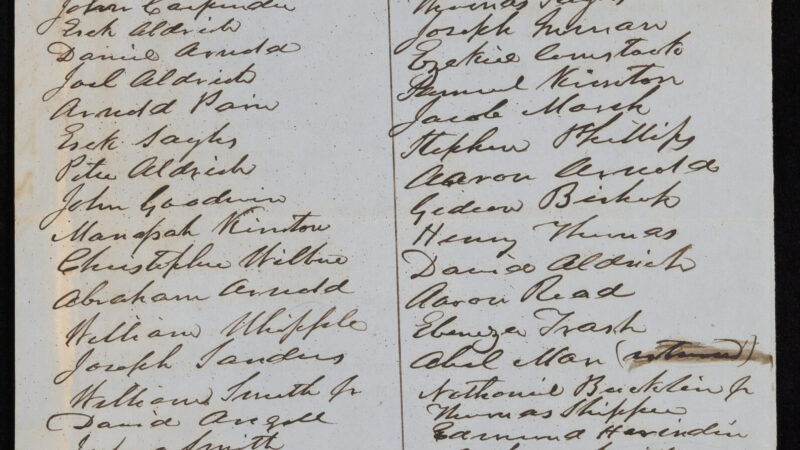 John Carpender
Esek Aldrich
Daniel Arnold
Joel Aldrich
Arnold Pain
Esek Sayles
Peter Aldrich
John Goodwin
Manassah Kinston
Christopher Wilbur
Abraham Arnold
William Whipple
Joseph Sanders
William Smith Jr
David Angell
Smith
Thomas
Joseph Inman
Ezekiel Comstock
Samuel Kinston
Jacob Marsh
Stephen Phillips
Aaron Arnold
Gideon Bishop
Henry Thomas
David Aldrich
Aaron Read
Ebenezer Trask
Abel Man (returned)
Nathaniel Bucklin Jr
Thomas Shippee
Edmund